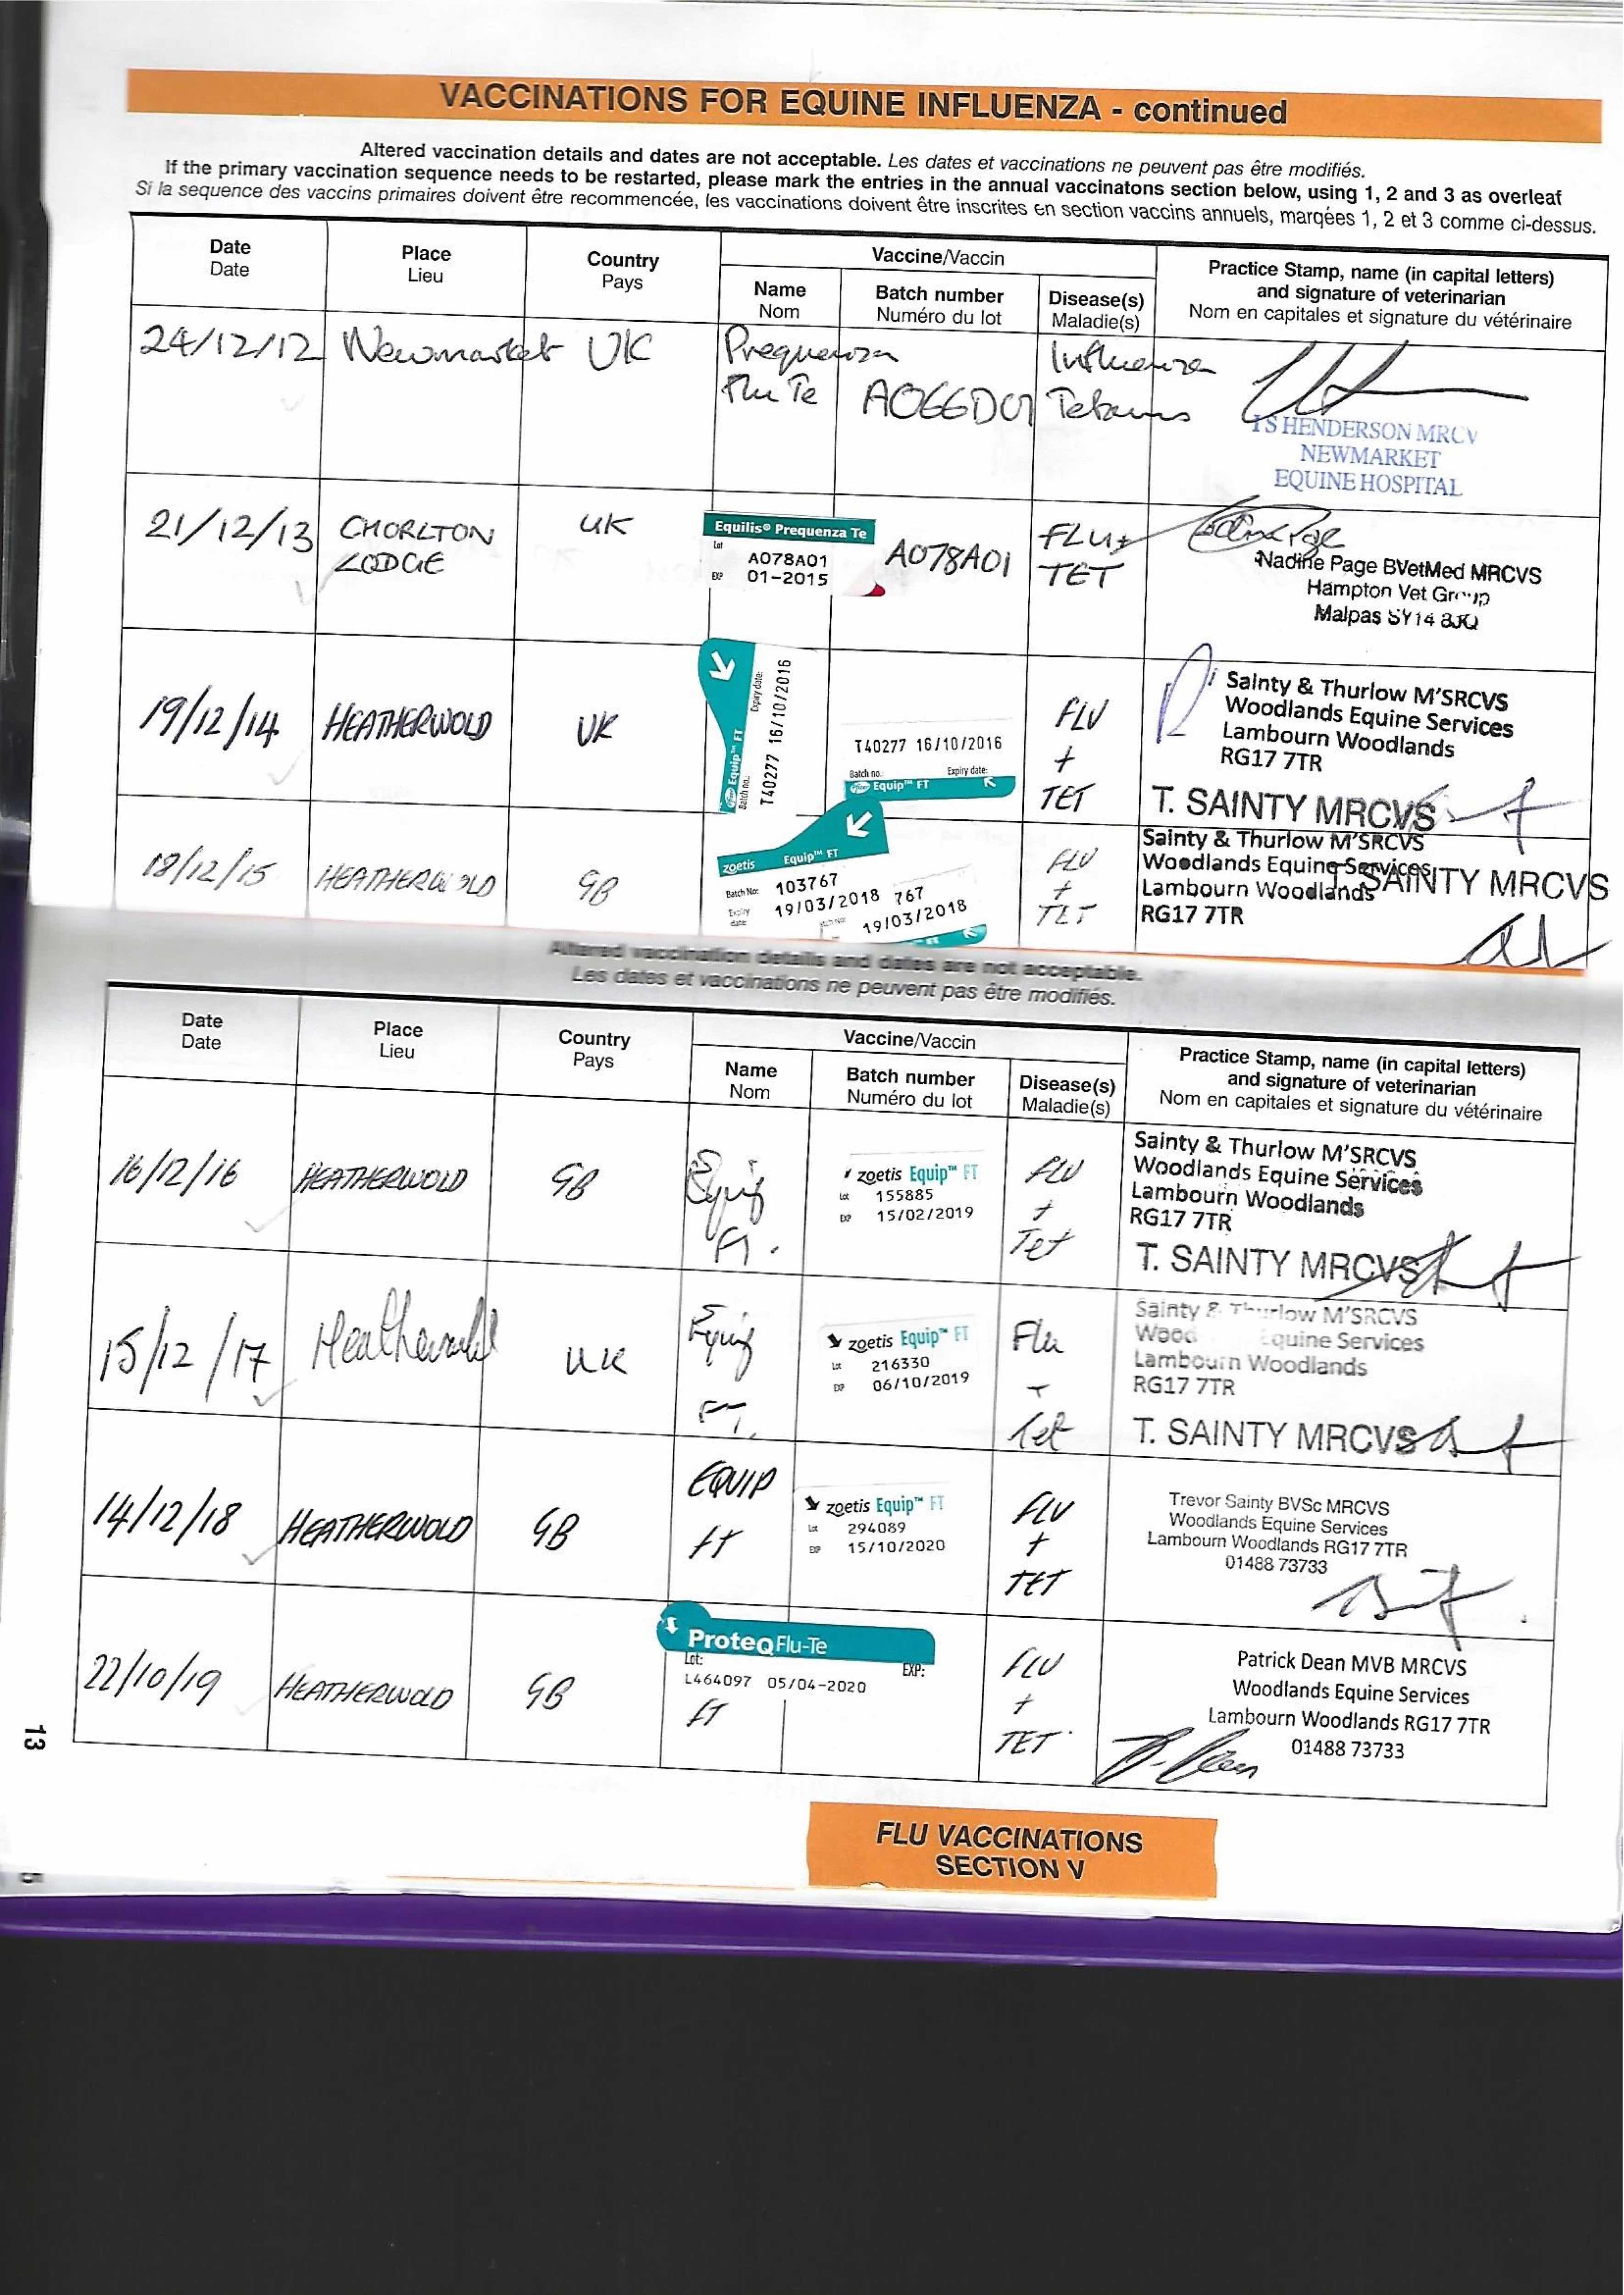 VACCINATIONS FOR EQUINE INFLUENZA - continued
Altered vaccination details and dates are not acceptable. Les dates et vaccinations ne peuvent pas être modifiés.
If the primary vaccination sequence needs to be restarted, please mark the entries in the annual vaccinatons section below, using 1, 2 and 3 as overleaf
Si la sequence des vaccins primaires doivent être recommencée, les vaccinations doivent être inscrites en section vaccins annuels, marqées 1, 2 et 3 comme ci-dessus.
Date
Date
Place
Lieu
Country
Pays
Vaccine/Vaccin
Name
Nom
Batch number
Numéro du lot
Disease(s)
Maladie(s)
Practice Stamp, name (in capital letters)
and signature of veterinarian
Nom en capitales et signature du vétérinaire
24/12/12 Newmarket UK
Prequenza
Flu Te
Influenza
Tetanus
HENDERSON MRCV
NEWMARKET
EQUINE HOSPITAL
21/12/13
CHORLTON
LODGE
UK
Equilis® Prequenza Te
Lot
A078A01
EXP 01-2015
A078A01
FLU+
TET
Nadine Page BVetMed MRCVS
Hampton Vet Group
Malpas SY14 8JQ
19/12/14
HEATHERWOLD
UK
Equip™ FT
Batch no.
Expiry date:
T40277 16/10/2016
T40277 16/10/2016
Batch no.: Expiry date:
Equip™ FT
FLU
+
TET
Sainty & Thurlow M'SRCVS
Woodlands Equine Services
Lambourn Woodlands
RG17 7TR
T. SAINTY MRCVS
18/12/15
HEATHERWOLD
GB
zoetis Equip™ FT
Batch No: 103767
Expiry date: 19/03/2018
767
19/03/2018
FLU
+
TET
Sainty & Thurlow M'SRCVS
Woodlands Equine Services
Lambourn Woodlands
RG17 7TR
SAINTY MRCVS
Altered vaccination details and dates are not acceptable.
Les dates et vaccinations ne peuvent pas être modifiés.
Date
Date
Place
Lieu
Country
Pays
Vaccine/Vaccin
Name
Nom
Batch number
Numéro du lot
Disease(s)
Maladie(s)
Practice Stamp, name (in capital letters)
and signature of veterinarian
Nom en capitales et signature du vétérinaire
16/12/16
HEATHERWOLD
GB
Equip
FT.
zoetis Equip™ FT
Lot 155885
EXP 15/02/2019
FLU
+
Tet
Sainty & Thurlow M'SRCVS
Woodlands Equine Services
Lambourn Woodlands
RG17 7TR
T. SAINTY MRCVS
15/12/17
Heatherwold
UK
Equip
FT.
zoetis Equip™ FT
Lot 216330
EXP 06/10/2019
Flu
+
Tet
Sainty & Thurlow M'SRCVS
Equine Services
Lambourn Woodlands
RG17 7TR
T. SAINTY MRCVS
14/12/18
HEATHERWOLD
GB
EQUIP
FT
zoetis Equip™ FT
Lot 294089
EXP 15/10/2020
FLU
+
TET
Trevor Sainty BVSc MRCVS
Woodlands Equine Services
Lambourn Woodlands RG17 7TR
01488 73733
22/10/19
HEATHERWOLD
GB
ProteqFlu-Te
Lot: EXP:
L464097 05/04-2020
FT
FLU
+
TET
Patrick Dean MVB MRCVS
Woodlands Equine Services
Lambourn Woodlands RG17 7TR
01488 73733
13
FLU VACCINATIONS
SECTION V